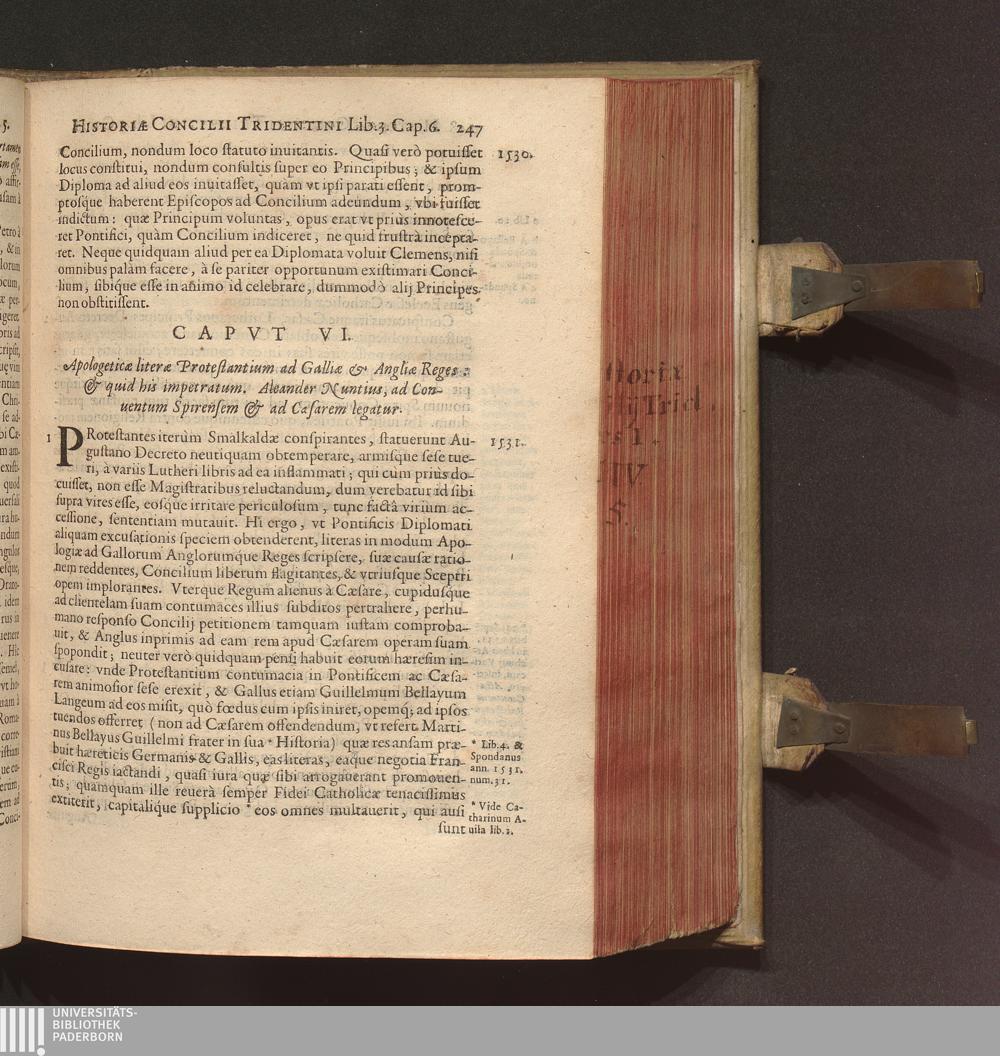 HISTORIÆ CONCILII TRIDENTINI Lib.3. Cap.6. 247
Concilium, nondum loco ſtatuto inuitantis. Quaſi verò potuiſſet
1530.
locus conſtitui, nondum conſultis ſuper eo Principibus; & ipſum
Diploma ad aliud eos inuitaſſet, quàm vt ipſi parati eſſent, prom-
ptoſque haberent Epiſcopos ad Concilium adeundum, vbi fuiſſet
indictum: quæ Principum voluntas, opus erat vt priùs innoteſce-
ret Pontifici, quàm Concilium indiceret, ne quid fruſtrà incepta-
ret. Neque quidquam aliud per ea Diplomata voluit Clemens, niſi
omnibus palàm facere, à ſe pariter opportunum exiſtimari Conci-
lium, ſibique eſſe in animo id celebrare, dummodò alij Principes
non obſtitiſſent.
CAPVT VI.
Apologeticæ literæ Proteſtantium ad Galliæ & Angliæ Reges:
& quid his impetratum. Aleander Nuntius, ad Con-
uentum Spirenſem & ad Cæſarem legatur.
1 PRoteſtantes iterùm Smalkaldæ conſpirantes, ſtatuerunt Au-
1531.
guſtano Decreto neutiquam obtemperare, armiſque ſeſe tue-
ri, à variis Lutheri libris ad ea inflammati; qui cum priùs do-
cuiſſet, non eſſe Magiſtratibus reluctandum, dum verebatur id ſibi
ſupra vires eſſe, eoſque irritare periculoſum, tunc factâ virium ac-
ceſſione, ſententiam mutauit. Hi ergo, vt Pontificis Diplomati
aliquam excuſationis ſpeciem obtenderent, literas in modum Apo-
logiæ ad Gallorum Anglorumque Reges ſcripſere, ſuæ cauſæ ratio-
nem reddentes, Concilium liberum flagitantes, & vtriuſque Sceptri
opem implorantes. Vterque Regum alienus à Cæſare, cupiduſque
ad clientelam ſuam contumaces illius ſubditos pertrahere, perhu-
mano reſponſo Concilij petitionem tamquam iuſtam comproba-
uit, & Anglus inprimis ad eam rem apud Cæſarem operam ſuam
ſpopondit; neuter verò quidquam penſi habuit eorum hæreſim in-
cuſare: vnde Proteſtantium contumacia in Pontificem ac Cæſa-
rem animoſior ſeſe erexit, & Gallus etiam Guillelmum Bellayum
Langeum ad eos miſit, quò fœdus cum ipſis iniret, opemq; ad ipſos
tuendos offerret (non ad Cæſarem offendendum, vt refert Marti-
nus Bellayus Guillelmi frater in ſua * Hiſtoria) quæ res anſam præ-
buit hæreticis Germanis & Gallis, eas literas, eaque negotia Fran-
ciſci Regis iactandi, quaſi iura quæ ſibi arrogauerant promouen-
tis; quamquam ille reuerà ſemper Fidei Catholicæ tenaciſſimus
extiterit, capitalique ſupplicio * eos omnes multauerit, qui auſi
ſunt
* Lib.4. &
Spondanus
ann. 1531.
num.31.
* Vide Ca-
tharinum A-
uila lib.2.
UNIVERSITÄTS-
BIBLIOTHEK
PADERBORN